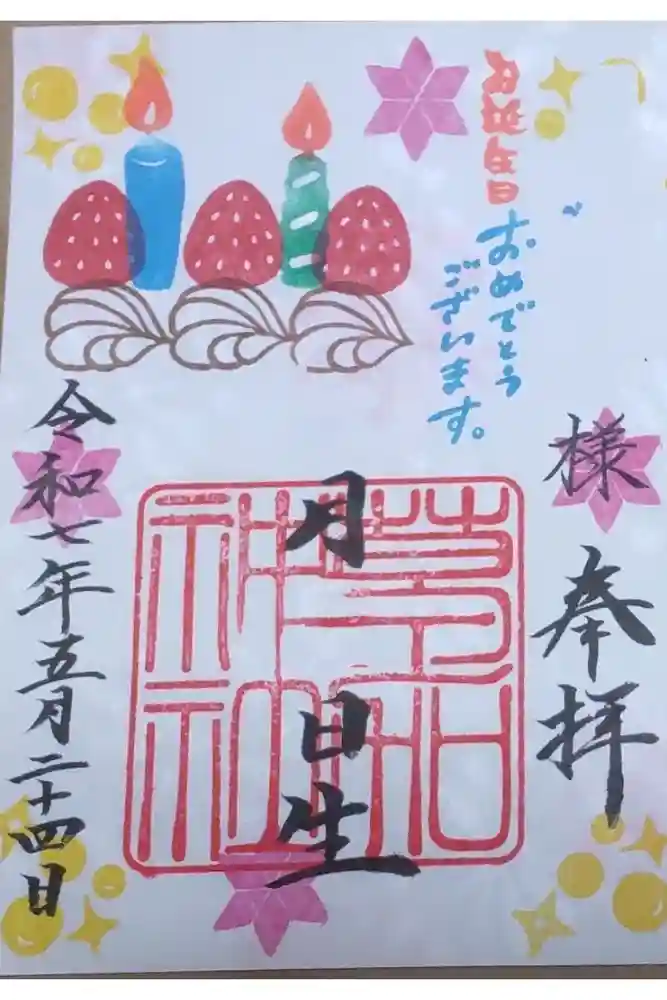 お誕生日
おめでとう
ございます。
様
奉拝
月 日生
神社
令和七年五月二十四日